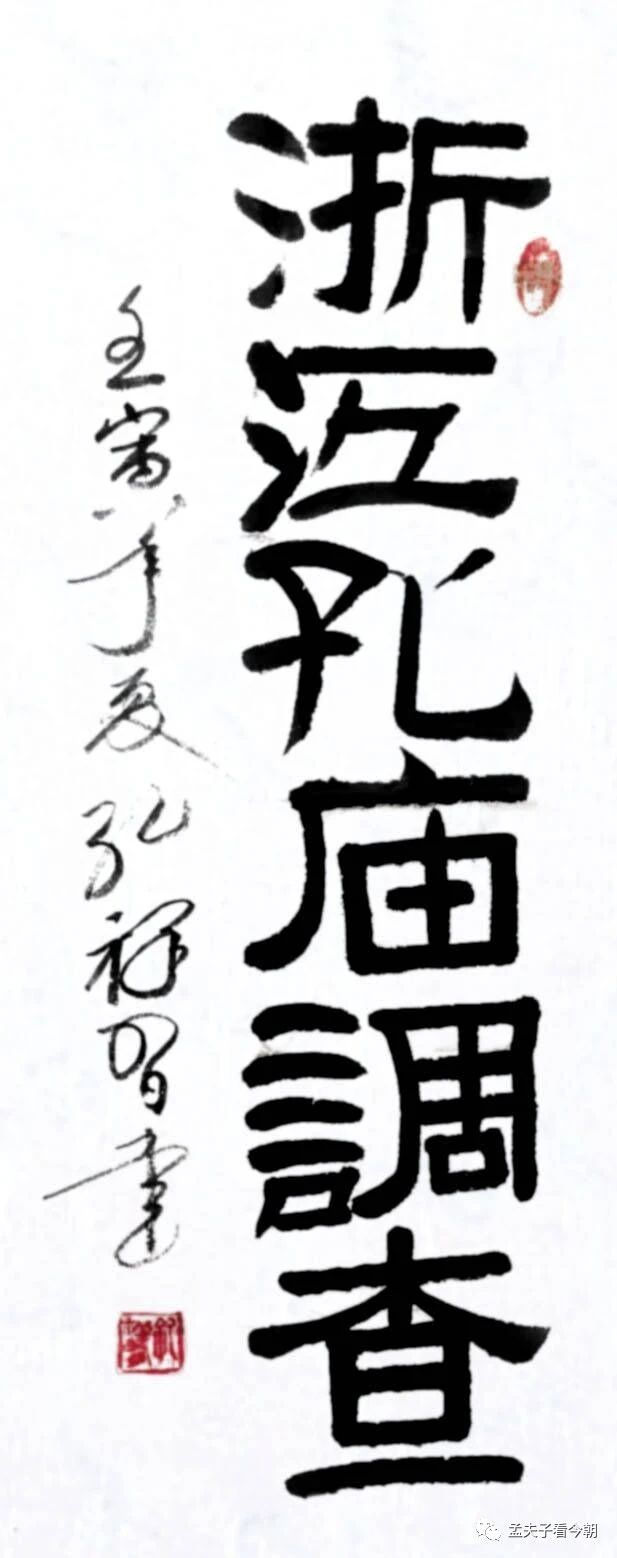 浙江孔庙調查
壬寅年夏弘祥習書
孟夫子看今朝